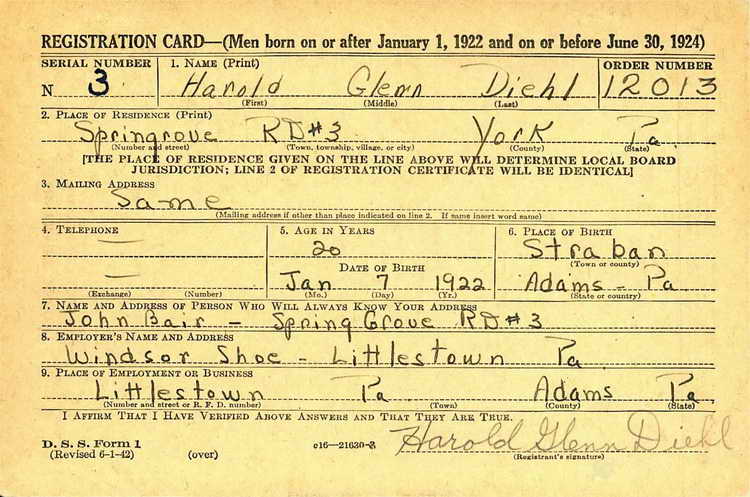 REGISTRATION CARD—(Men born on or after January 1, 1922 and on or before June 30, 1924)
SERIAL NUMBER 1. NAME (Print) ORDER NUMBER
N 3 Harold Glenn Diehl 12013
(First) (Middle) (Last)
2. PLACE OF RESIDENCE (Print)
Springrove RD#3 York Pa
(Number and street) (Town, township, village, or city) (County) (State)
[THE PLACE OF RESIDENCE GIVEN ON THE LINE ABOVE WILL DETERMINE LOCAL BOARD
JURISDICTION; LINE 2 OF REGISTRATION CERTIFICATE WILL BE IDENTICAL]
3. MAILING ADDRESS
Same
(Mailing address if other than place indicated on line 2. If same insert word same)
4. TELEPHONE 5. AGE IN YEARS 6. PLACE OF BIRTH
— 20 Straban
(Town or county)
DATE OF BIRTH
— Jan 7 1922 Adams - Pa
(Exchange) (Number) (Mo.) (Day) (Yr.) (State or country)
7. NAME AND ADDRESS OF PERSON WHO WILL ALWAYS KNOW YOUR ADDRESS
John Bair - Spring Grove RD#3
8. EMPLOYER'S NAME AND ADDRESS
Windsor Shoe - Littlestown Pa
9. PLACE OF EMPLOYMENT OR BUSINESS
Littlestown Pa Adams Pa.
(Number and street or R. F. D. number) (Town) (County) (State)
I AFFIRM THAT I HAVE VERIFIED ABOVE ANSWERS AND THAT THEY ARE TRUE.
D. S. S. Form 1
(Revised 6-1-42) (over) c16—21630-2 Harold Glenn Diehl
(Registrant's signature)